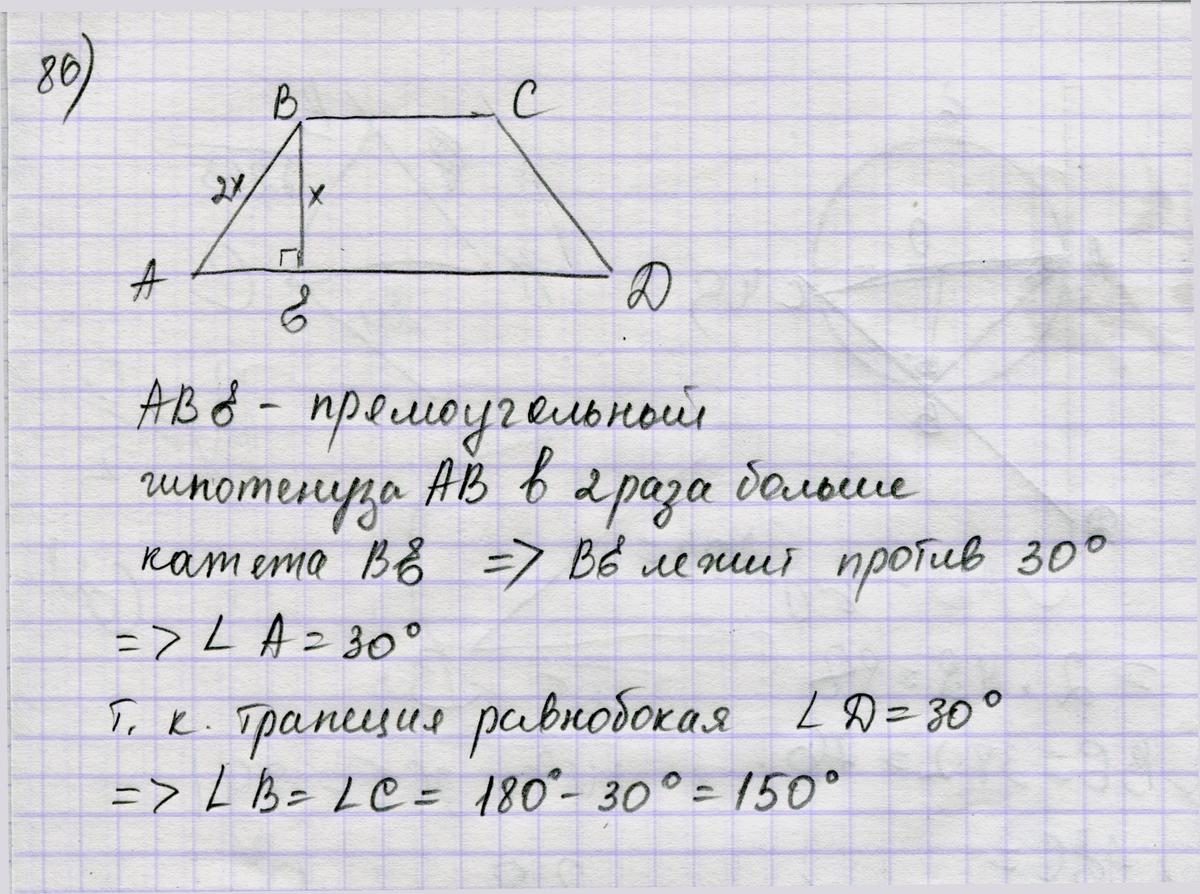 86)
B C
2x x
A E D
ABE - прямоугольный
гипотенуза AB в 2 раза больше
катета BE => BE лежит против 30°
=> ∠ A = 30°
т. к. трапеция равнобокая ∠ D = 30°
=> ∠ B = ∠ C = 180° - 30° = 150°